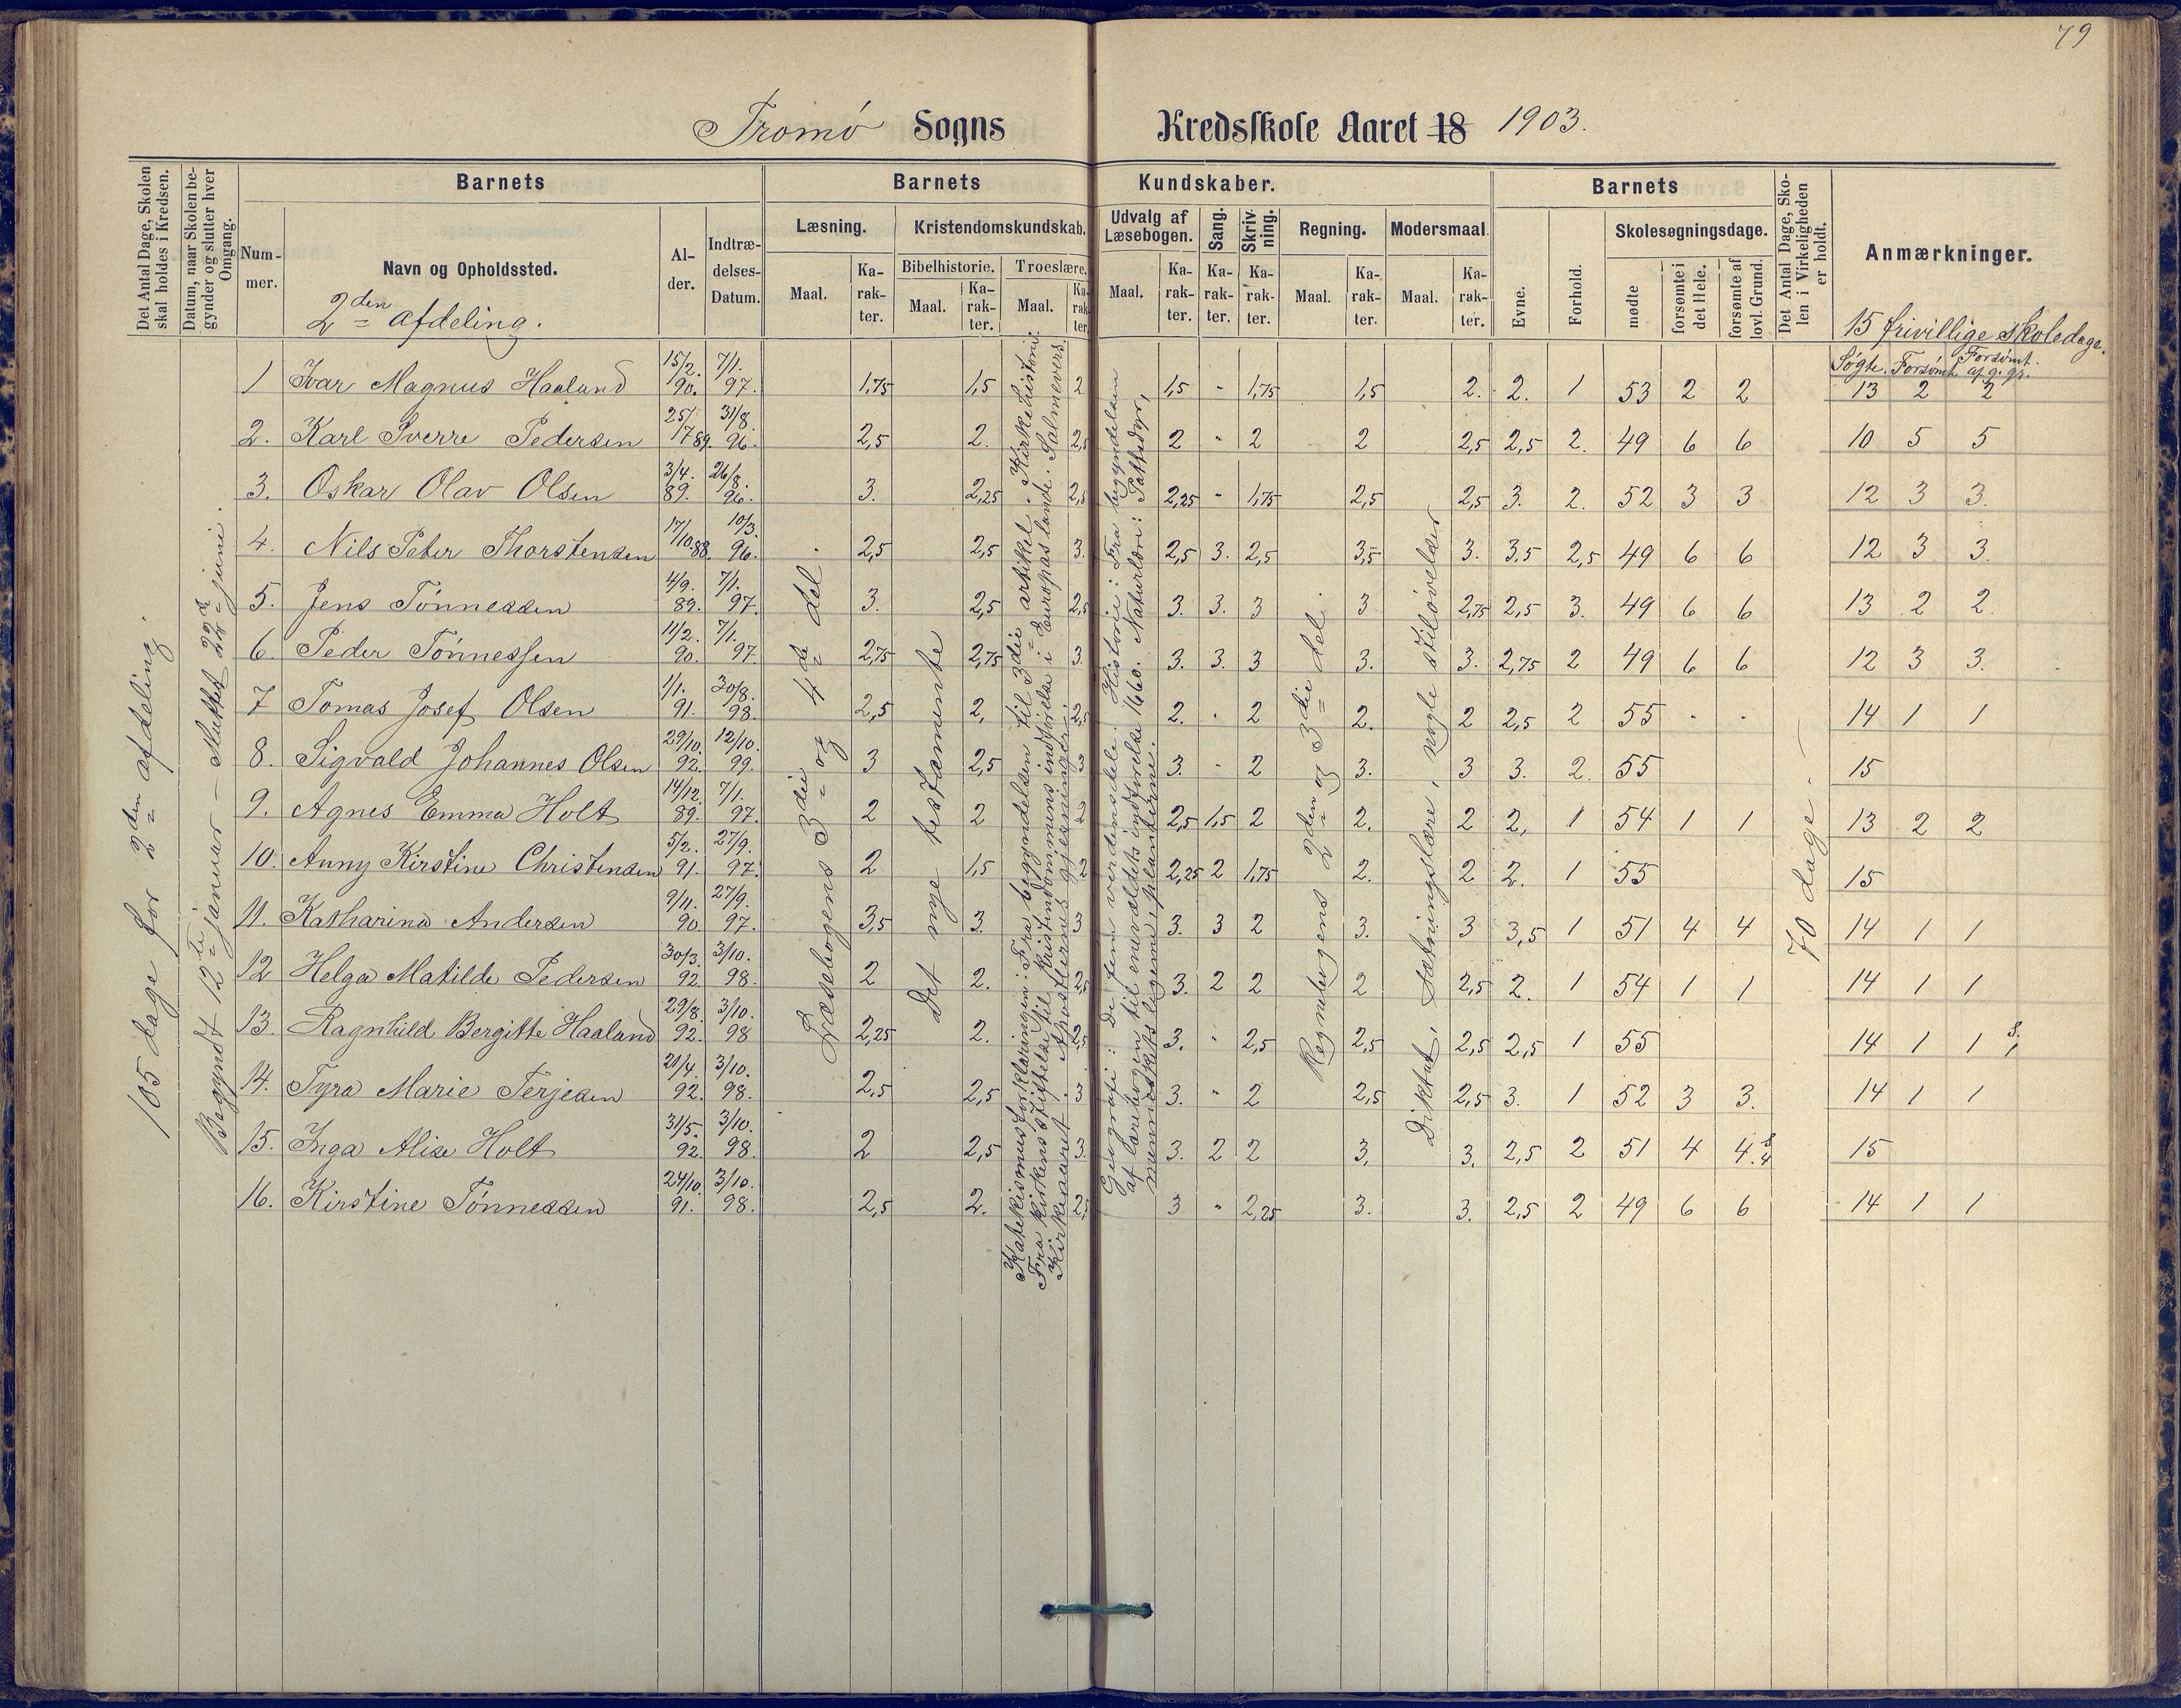 79
Tromø Sogns Kredsskole Aaret 18 1903.
Det Antal Dage, Skolen skal holdes i Kredsen.
Datum, naar Skolen begynder og slutter hver Omgang.
Barnets
Barnets Kundskaber.
Barnets
Det Antal Dage, Skolen i Virkeligheden er holdt.
Anmærkninger.
Nummer.
Navn og Opholdssted.
Alder.
Indtrædelses-Datum.
Læsning.
Kristendomskundskab.
Udvalg af Læsebogen.
Sang.
Skrivning.
Regning.
Modersmaal.
Evne.
Forhold.
Skolesøgningsdage.
Bibelhistorie.
Troeslære.
Maal. Karakter. Maal. Karakter. Maal. Karakter. Maal. Karakter. Karakter. Karakter. Maal. Karakter. Maal. Karakter.
mødte
forsømte i det Hele.
forsømte af lovl. Grund.
2den afdeling.
15 frivillige skoledage.
Søgte. Forsømt. Forsømt af g. gr.
105 dage for 2den afdeling.
Begyndt 12te januar – Sluttet 22de juni.
Læsebogens 3die og 4de del
Det nye testamente
Katekismusforklaringen: Fra begyndelsen til 3die artikkel. Kirkehistorie:
Fra kirkens stiftelse til kristendommens indførelse i Europas lande. Salmevers.
Kirkeaaret. Apostlernes gjerninger.
Geografi: De fem verdensdele. Historie: Fra begyndelsen
af lærebogen til enevældets indførelse 1660. Naturlære: Pattedyr,
menneskets legeme, planterne.
Regnebogens 2den og 3die del.
Diktat, sætningslære, nogle stiløvelser
70 dage.
1 Ivar Magnus Haaland 15/2. 90. 7/1. 97. 1,75 1,5 2 1,5 " 1,75 1,5 2. 2. 1 53 2 2 13 2 2
2. Karl Sverre Pedersen 25/ 17 89. 31/8. 96. 2,5 2. 2,5 2 " 2 2 2,5 2,5 2. 49 6 6 10 5 5
3. Oskar Olav Olsen 3/4. 89. 26/8. 96. 3. 2,25 2,5 2,25 " 1,75 2,5 2,5 3. 2. 52 3 3 12 3 3.
4. Nils Peter Thorstensen 17/10 88. 10/3. 96. 2,5 2,5 3. 2,5 3. 2,5 3,5 3. 3,5 2,5 49 6 6 12 3 3.
5. Jens Tønnessen 4/9. 89. 7/1. 97. 3. 2,5 2,5 3. 3. 3 3 2,75 2,5 3. 49 6 6 13 2 2.
6. Peder Tønnessen 11/2. 90. 7/1. 97. 2,75 2,75 3. 3. 3. 3 3. 3. 2,75 2 49 6 6 12 3 3.
7 Tomas Josef Olsen 1/1. 91. 30/8. 98. 2,5 2, 2,5 2. " 2 2. 2 2,5 2 55 " " 14 1 1
8. Sigvald Johannes Olsen 29/10. 92. 12/10. 99. 3 2,5 3 3. " 2 3. 3 3. 2. 55 15
9. Agnes Emma Holt 14/12. 89. 7/1. 97. 2 2 2 2,5 1,5 2 2. 2 2, 1 54 1 1 13 2 2
10. Anny Kirstine Christensen 5/2. 91. 27/9. 97. 2 1,5 2 2,25 2 1,75 2. 2 2. 1 55 15
11. Katharina Andersen 9/11. 90. 27/9. 97. 3,5 3. 3 3. 3 2 3. 3 3,5 1 51 4 4 14 1 1
12 Helga Matilde Pedersen 30/3. 92. 3/10. 98. 2 2. 2,5 3. 2 2 2 2,5 2. 1 54 1 1 14 1 1
13. Ragnhild Bergitte Haaland 29/8. 92. 3/10. 98 2,25 2. 2,5 3. " 2,5 2,5 2,5 2,5 1 55 14 1 1 s. 1
14. Tyra Marie Terjesen 21/4. 92. 3/10. 98. 2,5 2,5 3 3. " 2 2,5 2,5 3. 1 52 3 3. 14 1 1
15. Inga Alise Holt 31/5. 92. 3/10. 98. 2 2,5 3. 3. 2 2 3. 3. 2,5 2 51 4 4. s. 4 15
16. Kirstine Tønnessen 24/10. 91. 3/10. 98. 2,5 2. 2,5 3. " 2,25 3. 3. 2,5 2 49 6 6 14 1 1